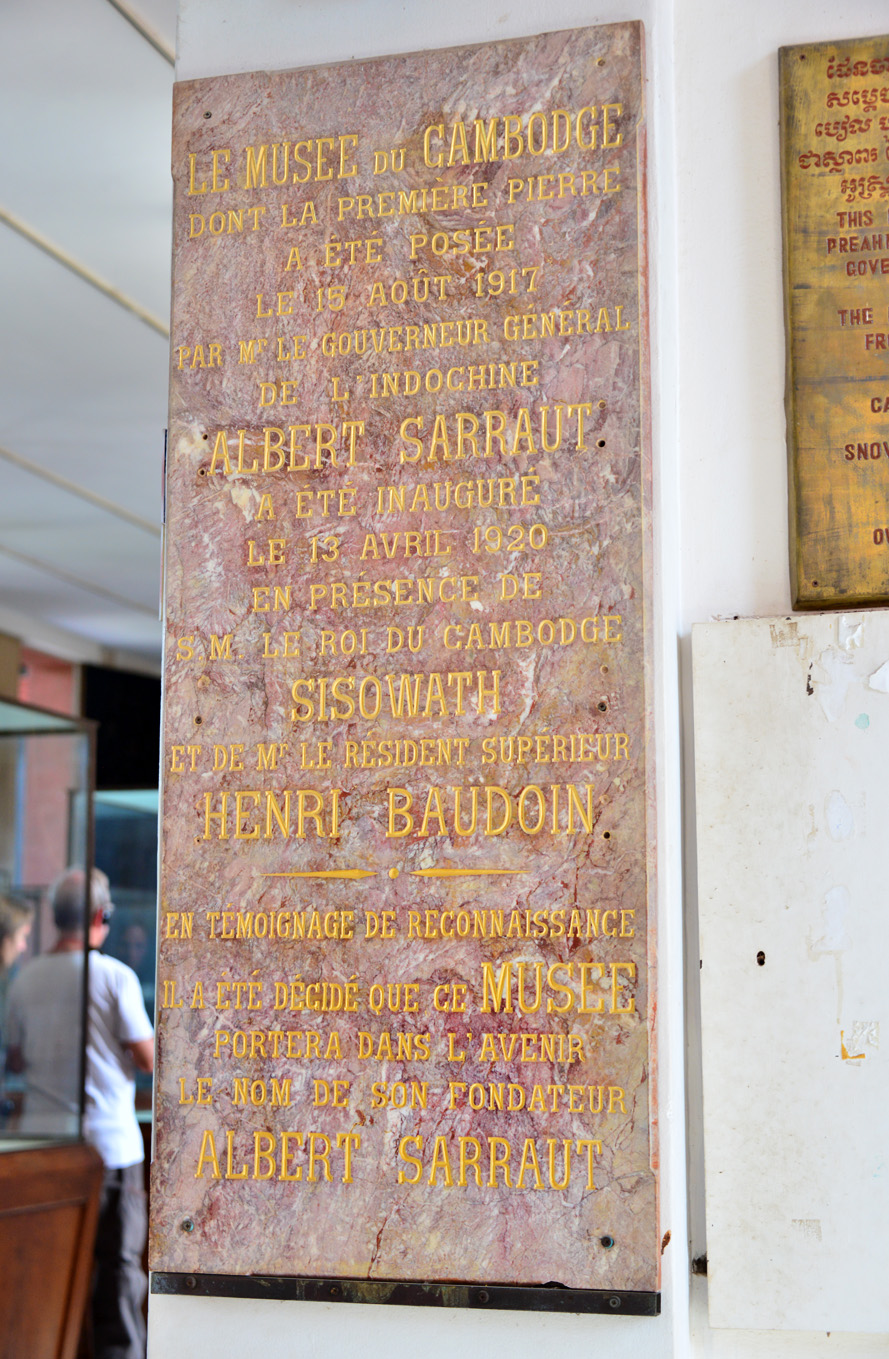 LE MUSEE DU CAMBODGE
DONT LA PREMIÈRE PIERRE
A ÉTÉ POSÉE
LE 15 AOÛT 1917
PAR Mr LE GOUVERNEUR GÉNÉRAL
DE L'INDOCHINE
ALBERT SARRAUT
A ÉTÉ INAUGURE
LE 13 AVRIL 1920
EN PRÉSENCE DE
S.M. LE ROI DU CAMBODGE
SISOWATH
ET DE Mr LE RÉSIDENT SUPÉRIEUR
HENRI BAUDOIN
EN TÉMOIGNAGE DE RECONNAISSANCE
IL A ÉTÉ DÉCIDÉ QUE CE MUSEE
PORTERA DANS L'AVENIR
LE NOM DE SON FONDATEUR
ALBERT SARRAUT
សម្តេច
ជាស្ថាពរ
THIS
PREAH
GOVE
THE
FR
CA
SNOV
OV